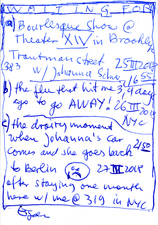 WAITING FOR
(a) Bourlesque Show @
Theater XIV in Brooklyn
Troutman street 25 III 2018
383 w/ Johanna 16 55
b) the flew that hit me 3/4 days
ago to go AWAY! 26 III 2018
NYC
c) the drowsy moment
when Johanna's car 2150
comes and she goes back
to Berlin 27 III 2018
after staying one month
here w/ me @ 319 in NYC.